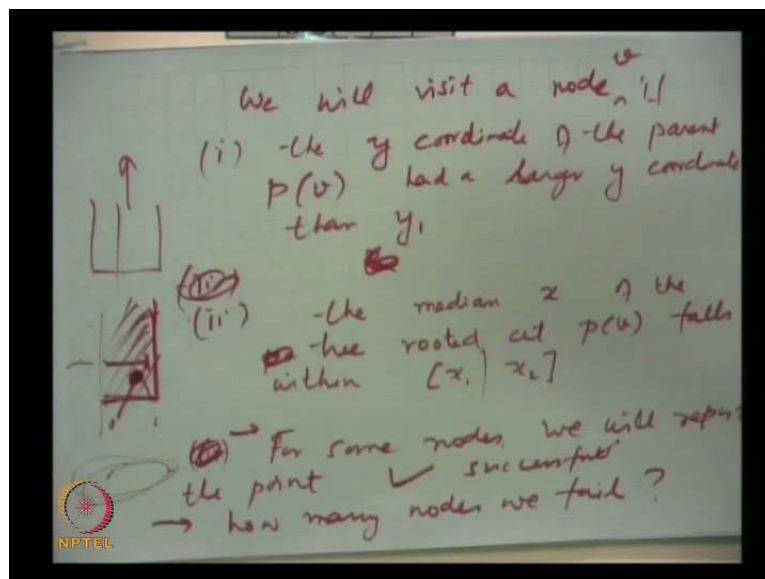 We will visit a node v if
(i) the y coordinate of the parent
p(v) had a larger y coordinate
than y1
(ii)
(ii) the median x of the
tree rooted at p(v) falls
within [x1, x2]
→ For some nodes we will report
the point ✓ successful
→ how many nodes we fail?
NPTEL